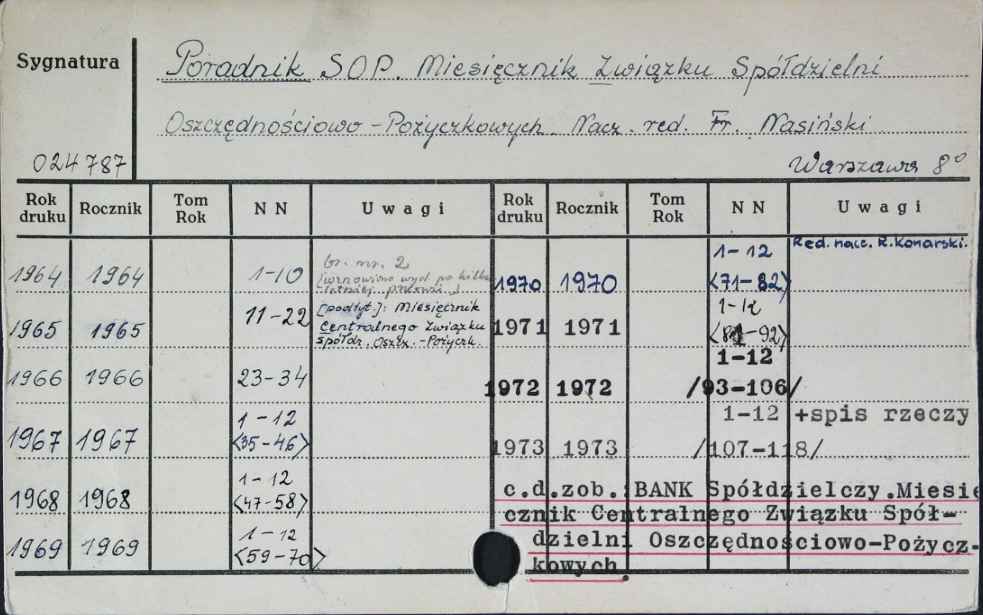 Sygnatura
Poradnik SOP. Miesięcznik Związku Spółdzielni
Oszczędnościowo-Pożyczkowych. Nacz. red. Fr. Nasiński
024787
Warszawa 8°
Rok druku Rocznik Tom Rok NN Uwagi Rok druku Rocznik Tom Rok NN Uwagi
1964 1964 1-10 br. nr. 2
[wznowiono wyd. po kilku
letniej przerwie]
1965 1965 11-22 [podtyt.]: Miesięcznik
Centralnego Związku
Spółdz. Oszcz.-Pożyczk.
1966 1966 23-34
1967 1967 1-12
<35-46>
1968 1968 1-12
<47-58>
1969 1969 1-12
<59-70>
1970 1970 1-12 Red. nacz. R. Konarski.
<71-82>
1971 1971 1-12
-92>
1972 1972 1-12
/93-106/
1973 1973 1-12 +spis rzeczy
/107-118/
c.d.zob.:BANK Spółdzielczy.Miesię
cznik Centralnego Związku Spół-
dzielni Oszczędnościowo-Pożycz-
kowych.